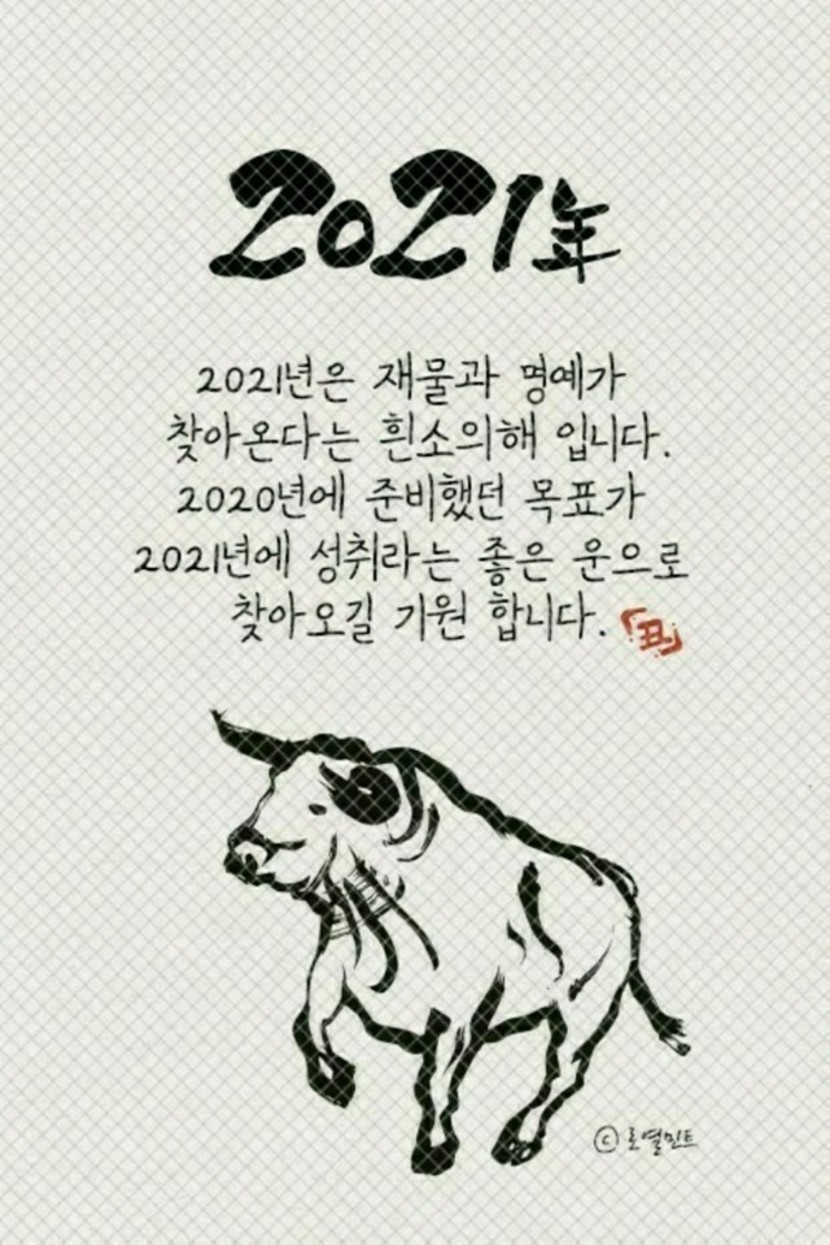 2021年
2021년은 재물과 명예가
찾아온다는 흰소의해 입니다.
2020년에 준비했던 목표가
2021년에 성취라는 좋은 운으로
찾아오길 기원 합니다.
丑
ⓒ 로열민트